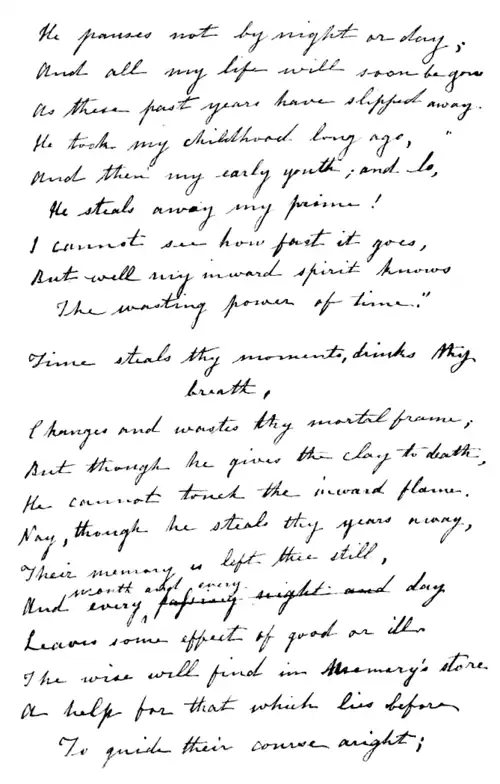 He pauses not by night or day;
And all my life will soon be gone
As these past years have slipped away.
He took my childhood long ago, "
And then my early youth; and lo,
He steals away my prime!
I cannot see how fast it goes,
But well my inward spirit knows
The wasting power of time."
Time steals thy moments, drinks thy
breath,
Changes and wastes thy mortal frame;
But though he gives the clay to death,
He cannot touch the inward flame.
Nay, though he steals thy years away,
Their memory is left thee still,
month and every
And every passing night and day
Leaves some effect of good or ill.
The wise will find in Memory's store
A help for that which lies before
To guide their course aright;